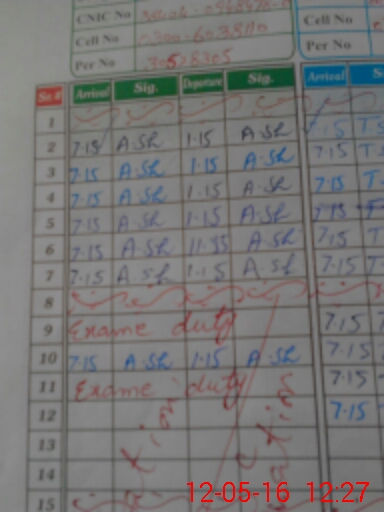 CNIC No
Cell No 0300-6038110 Cell No
Per No 30528305 Per No
Sr.# Arrival Sig. Departure Sig. Arrival S
1
2 7.15 A.Sh 1.15 A.Sh 7.15 T.S
3 7.15 A.Sh 1.15 A.Sh 7.15 T.
4 7.15 A.Sh 1.15 A.Sh 7.15 T.
5 7.15 A.Sh 1.15 A.Sh 7.15 T
6 7.15 A.Sh 11.35 A.Sh 7.15 T
7 7.15 A.Sh 1.15 A.Sh 7.15 T
8
9 Exame duty 7.15
10 7.15 A.Sh 1.15 A.Sh 7.15
11 Exame duty 7.15
12 7.15
13
14
15
12-05-16 12:27